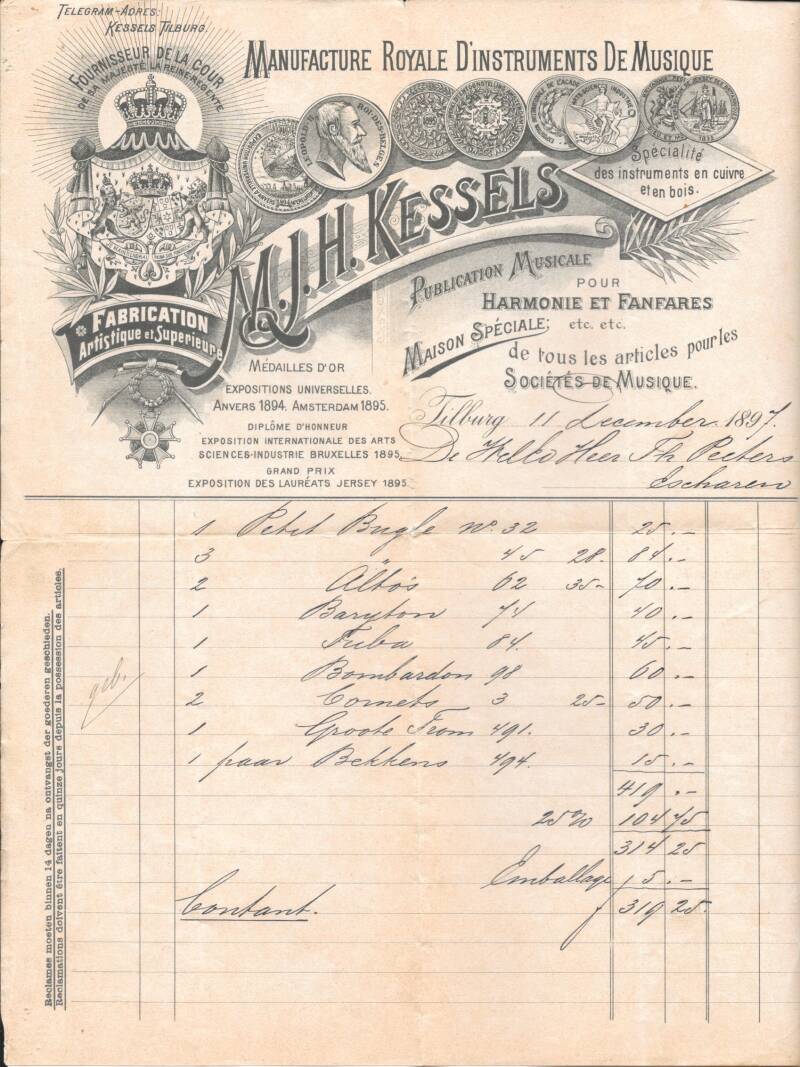 TELEGRAM-ADRES:
KESSELS TILBURG.
FOURNISSEUR DE LA COUR
DE SA MAJESTÉ LA REINE-REGENTE
MANUFACTURE ROYALE D'INSTRUMENTS DE MUSIQUE
Spécialité
des instruments en cuivre
et en bois.
M.J.H. KESSELS
FABRICATION
Artistique et Superieure
PUBLICATION MUSICALE
POUR
HARMONIE ET FANFARES
etc. etc.
MAISON SPÉCIALE;
de tous les articles pour les
SOCIÉTÉS DE MUSIQUE.
MÉDAILLES D'OR
EXPOSITIONS UNIVERSELLES.
ANVERS 1894. AMSTERDAM 1895.
DIPLÔME D'HONNEUR
EXPOSITION INTERNATIONALE DES ARTS
SCIENCES-INDUSTRIE BRUXELLES 1895
GRAND PRIX
EXPOSITION DES LAURÉATS JERSEY 1895
Tilburg 11 december 1897.
De Heer Th Peeters
Escharen
1 Petit Bugle No. 32 25.-
3 " 45 28- 84.-
2 Alto's 62 35- 70.-
1 Baryton 74 40.-
1 Tuba 84. 45.-
1 Bombardon 98 60.-
2 Cornets 3 25- 50.-
1 Groote Trom 491. 30.-
1 paar Bekkens 494. 15.-
419.-
25% 104 75
314 25
Emballage 5.-
Contant. f 319 25
geb.
Reclames moeten binnen 14 dagen na ontvangst der goederen geschieden.
Reclamations doivent être faitent en quinze jours depuis la possession des articles.